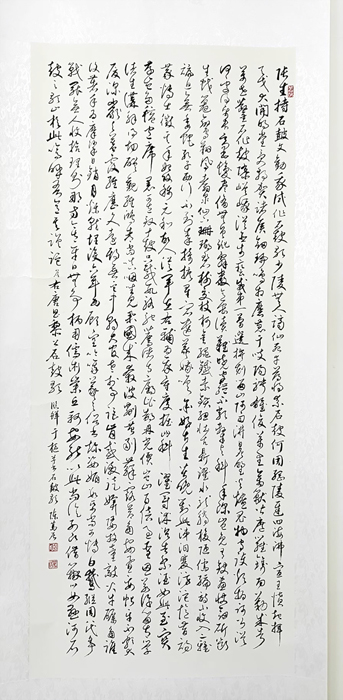 張生手持石鼓文勸我試作石鼓歌少陵無人謫仙死才薄將奈石鼓何周綱陵遲四海沸宣王憤起揮
天戈大開明堂受朝賀諸侯劍佩鳴相磨蒐于岐陽騁雄俊萬里禽獸皆遮羅鐫功勒成告
萬世鑿石作鼓隳嵯峨從臣才藝咸第一揀選撰刻留山阿雨淋日炙野火燎鬼物守護煩撝呵公從
何處得紙本毫髮盡備無差訛辭嚴義密讀難曉字體不類隸與蝌年深豈免有缺畫快劍斫斷
生蛟鼉鸞翔鳳翥眾仙下珊瑚碧樹交枝柯金繩鐵索鎖鈕壯古鼎躍水龍騰梭陋儒編詩不收入二雅
褊迫無委蛇孔子西行不到秦掎摭星宿遺羲娥嗟余好古生苦晚對此涕淚雙滂沱憶昔初
蒙博士徵其年始改稱元和故人從軍在右輔為我度量掘臼科濯冠沐浴告祭酒如此至寶
存豈多氈包席裹可立致十鼓祇載數駱駝薦諸太廟比郜鼎光價豈止百倍過聖恩若許留太學
諸生講解得切磋觀經鴻都尚填咽坐見舉國來奔波剜苔剔蘚露節角安置妥帖平不頗大
廈深簷與蓋覆經歷久遠期無佗中朝大官老於事詎肯感激徒媕婀牧童敲火牛礪角誰
復著手為摩挲日銷月鑠就埋沒六年西顧空吟哦羲之俗書趁姿媚數紙尚可博白鵝繼周八代爭
戰罷無人收拾理則那方今太平日無事柄任儒術崇丘軻安能以此上論列願借辯口如懸河石
鼓之歌止於此嗚呼吾意其蹉跎 石鼓歌